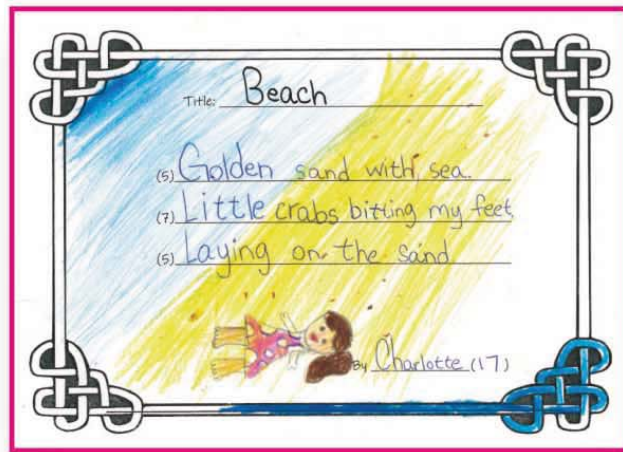 Title: Beach
(5) Golden sand with sea.
(7) Little crabs bitting my feet,
(5) Laying on the sand
By Charlotte (17)